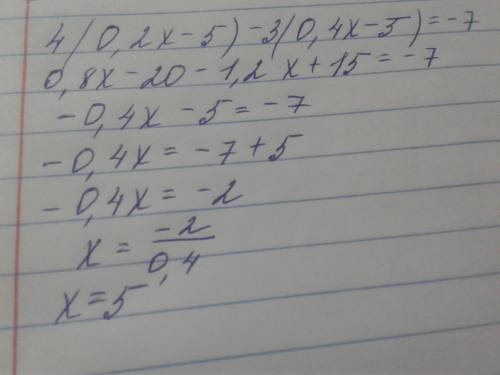 4(0,2x-5)-3(0,4x-5)=-7
0,8x-20-1,2x+15=-7
-0,4x-5=-7
-0,4x=-7+5
-0,4x=-2
x=\frac{-2}{0,4}
x=5